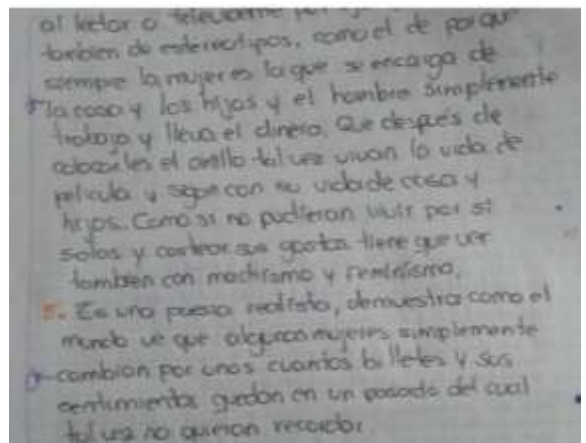 al lector o televidente por
tambien de estereotipos, como el de porque
siempre la mujer es la que se encarga de
la casa y los hijos y el hombre simplemente
trabaja y lleva el dinero. Que después de
colocarles el anillo tal vez vivan la vida de
pelicula y sigan con su vida de casa y
hijos. Como si no pudieran vivir por si
solas y costear sus gastos tiene que ver
tambien con machismo y feminismo.
5. Es una poesia realista, demuestra como el
mundo ve que algunas mujeres simplemente
cambian por unos cuantos billetes y sus
sentimientos quedan en un pasado del cual
tal vez no quieran recordar.